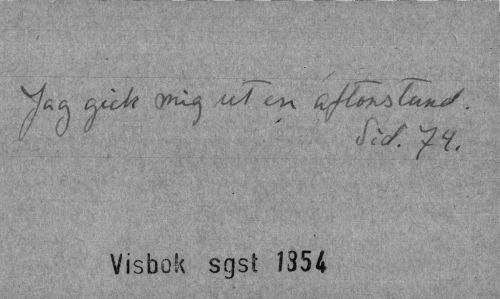 Jag gick mig ut en aftonstund.
Sid. 74.
Visbok sgst 1854